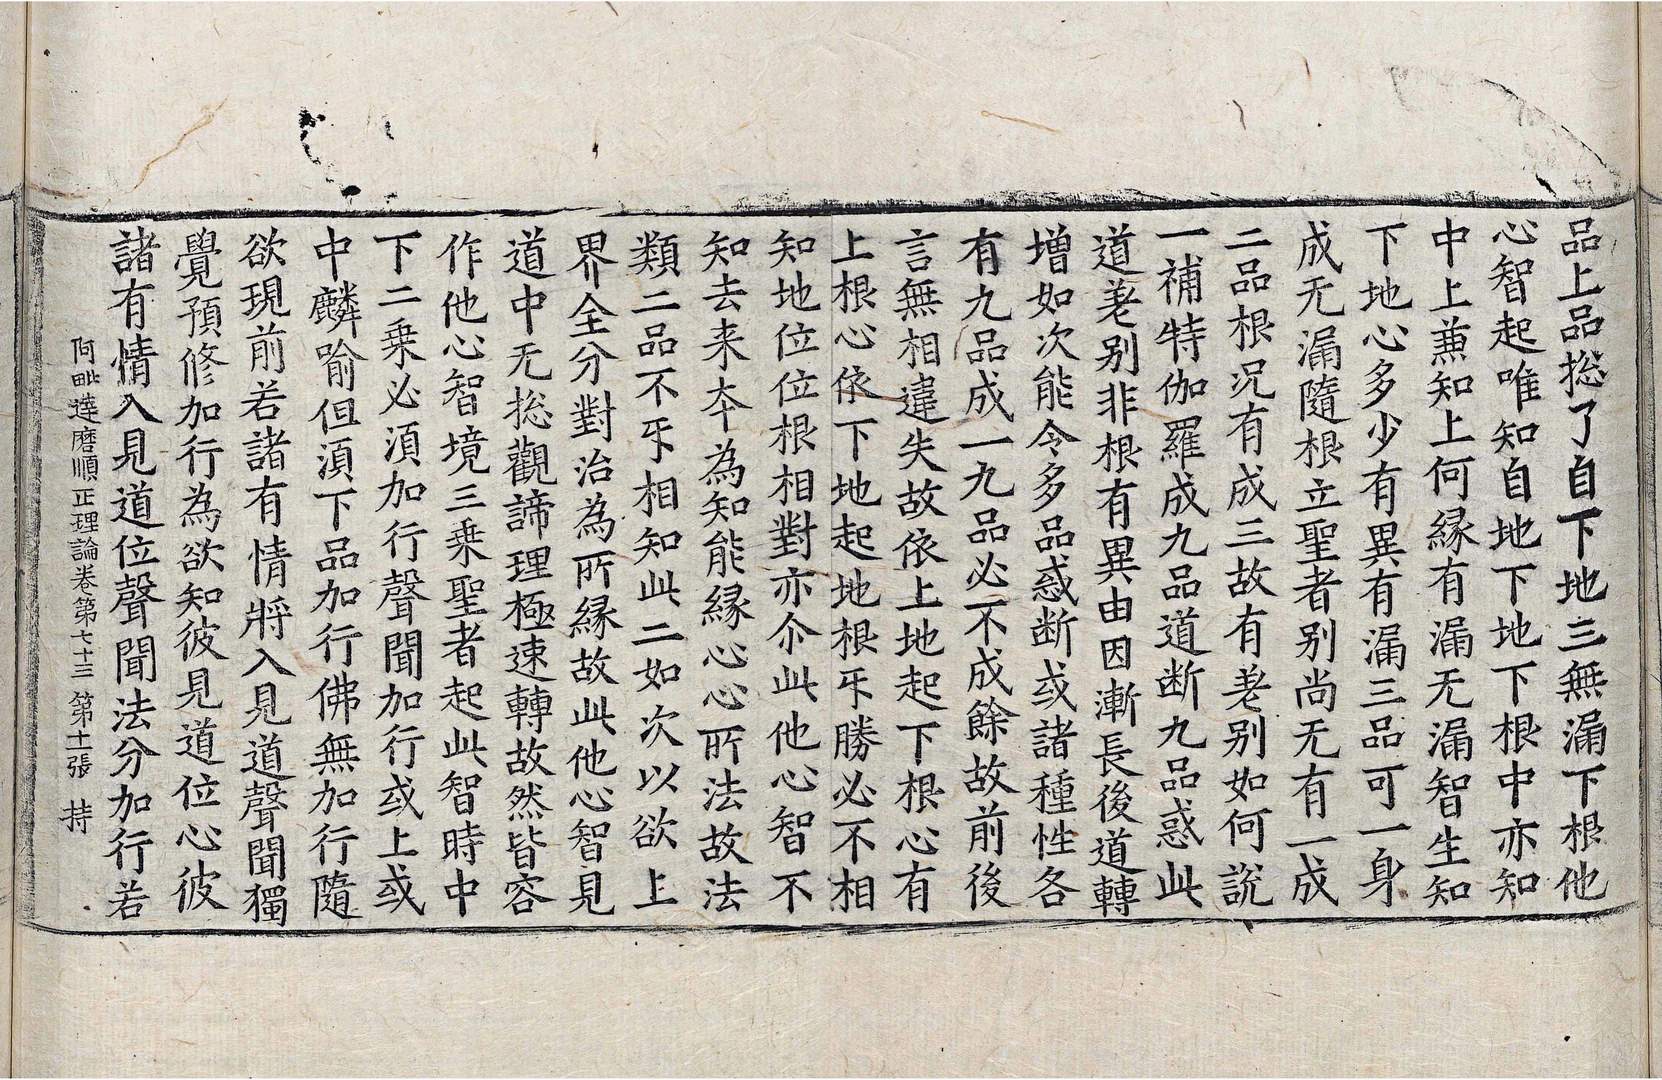 品上品捴了自下地三無漏下根他
心智起唯知自地下地下根中亦知
中上兼知上何縁有漏无漏智生知
下地心多少有異有漏三品可一身
成无漏隨根立聖者别尚无有一成
二品根况有成三故有差别如何說
一補特伽羅成九品道断九品惑此
道差别非根有異由因漸長後道轉
增如次能令多品惑断或諸種性各
有九品成一九品必不成餘故前後
言無相違失故依上地起下根心有
上根心依下地起地根㸦勝必不相
知地位位根相對亦尒此他心智不
知去来夲為知能縁心心所法故法
類二品不㸦相知此二如次以欲上
界全分對治為所縁故此他心智見
道中无捴觀諦理極速轉故然皆容
作他心智境三乗聖者起此智時中
下二乗必湏加行聲聞加行或上或
中麟喻但湏下品加行佛無加行隨
欲現前若諸有情將入見道聲聞獨
覺預修加行為欲知彼見道位心彼
諸有情入見道位聲聞法分加行若
阿毗達磨順正理論卷第七十三 第十一張 持